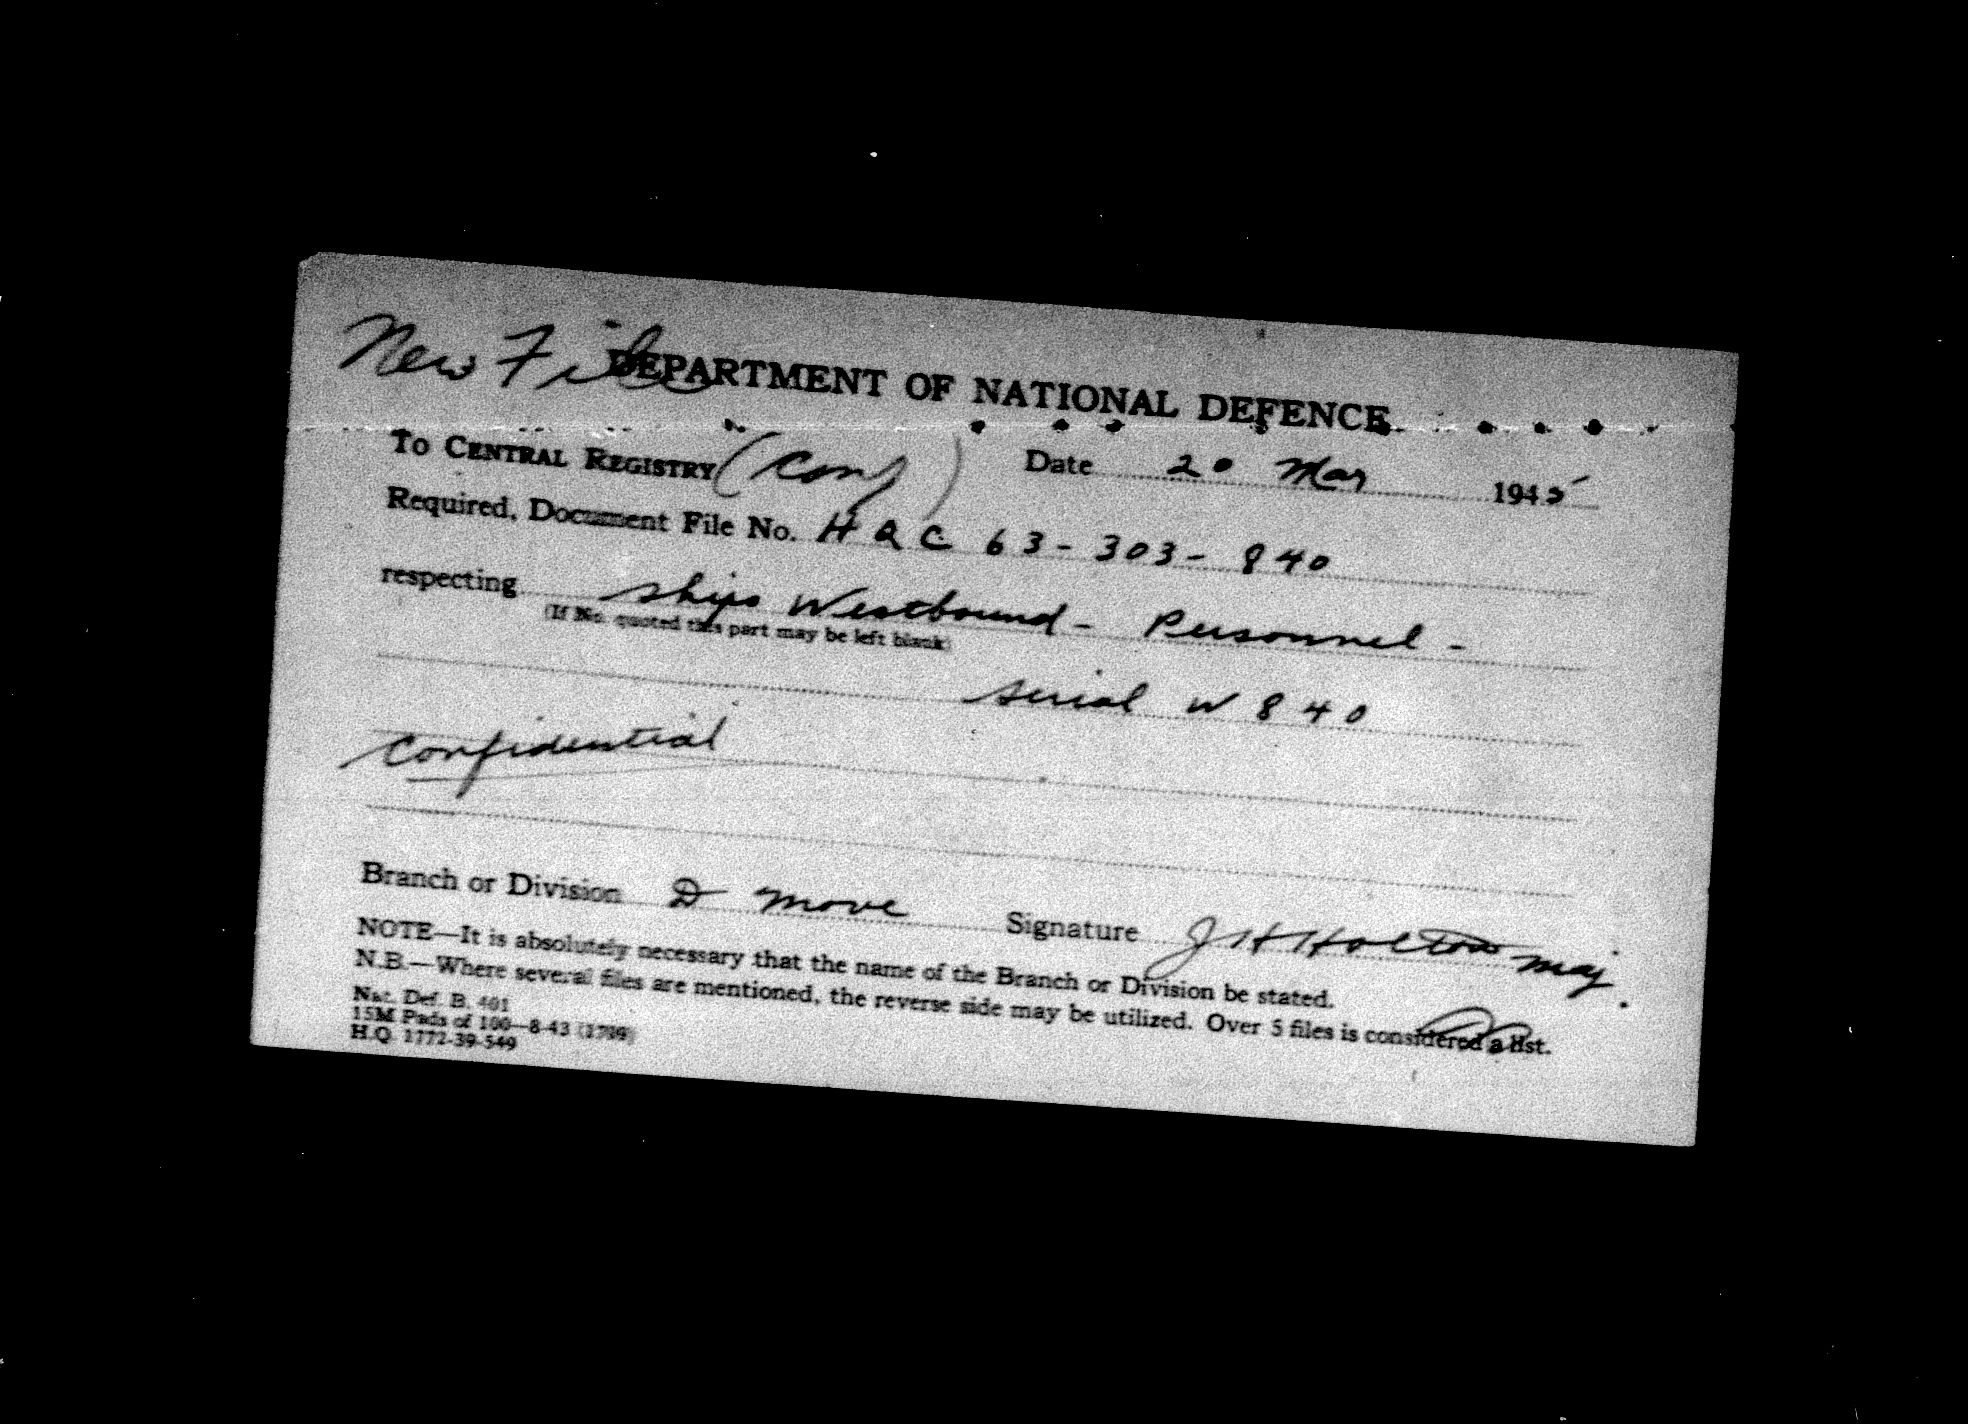 New File
DEPARTMENT OF NATIONAL DEFENCE
To CENTRAL REGISTRY (Conf) Date 20 Mar 1945
Required, Document File No. HQC 63-303-840
respecting Ships Westbound - Personnel -
(If No. quoted this part may be left blank)
Serial W 840
Confidential
Branch or Division D Move Signature J H Holton Maj.
NOTE—It is absolutely necessary that the name of the Branch or Division be stated.
N.B.—Where several files are mentioned, the reverse side may be utilized. Over 5 files is considered a list.
Nat. Def. B. 401
15M Pads of 100—8-43 (1709)
H.Q. 1772-39-549